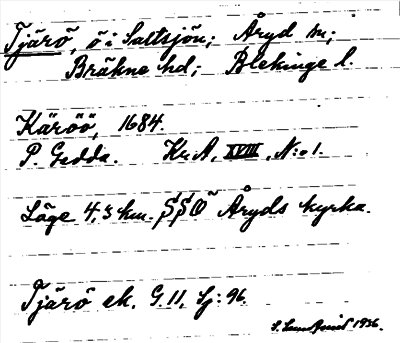 Tjärö, ö i Saltsjön; Åryd sn;
Bräkne hd; Blekinge l.
Käröö, 1684.
P. Gedda. Kr.A. XVIII, N:o 1.
Läge 4,3 km. SSO Åryds kyrka.
Tjärö ek. G 11, Sj: 96.
1936.